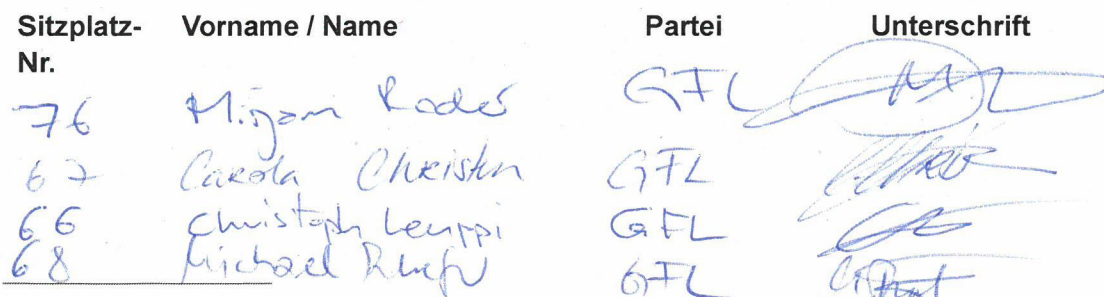 Sitzplatz- Vorname / Name Partei Unterschrift
Nr.
76 Mirjam Roder GFL
67 Carola Christen GFL
66 Christoph Leuppi GFL
68 Michael GFL